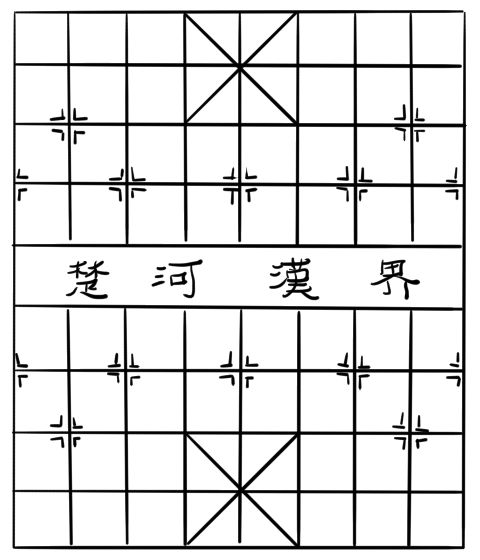 楚河漢界